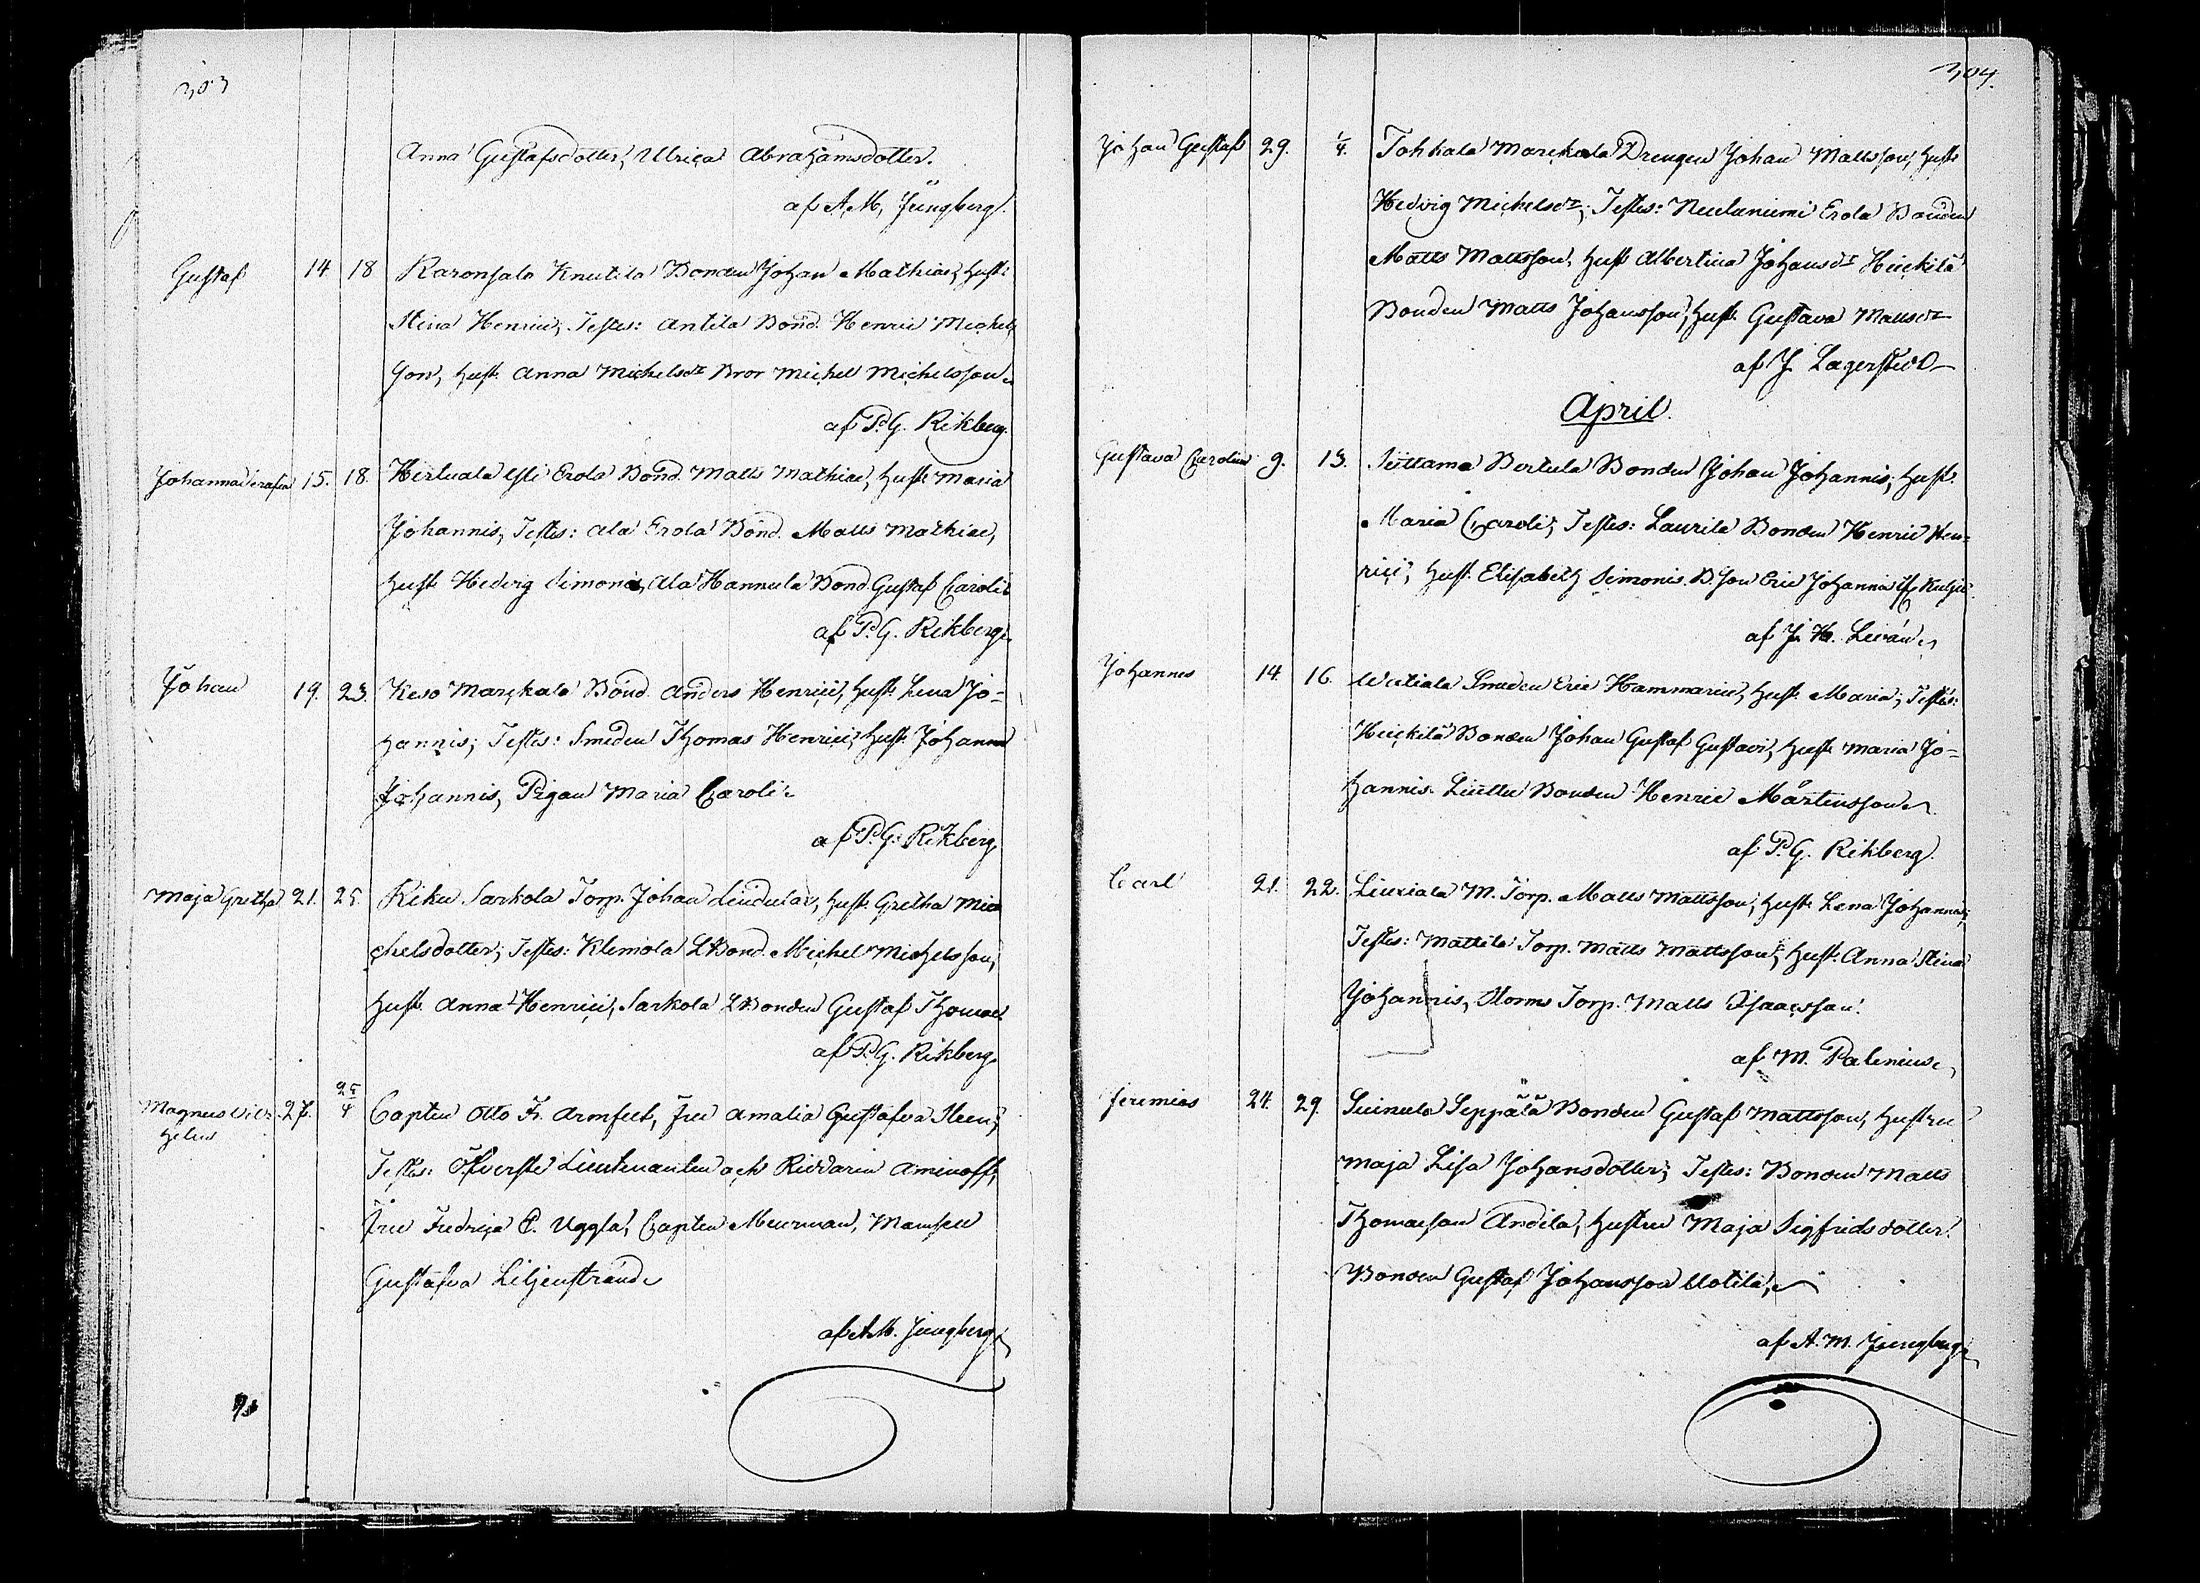 303
Anna Gustafsdotter, Ulrica Abrahamsdotter.
af A. M. Jungberg.
Gustaf 14 18 Karonsalo Knutila Bonden Johan Mathiæ, Hust:
Stina Henrici; Testes: Antila Bond. Henric Michels
son, Hust. Anna Michelsdr Bror Michel Michelsson
af P. G. Rikberg.
Johanna Serafia 15. 18. Hertuala Yli Erola Bond. Matts Mathiæ, Hust: Maria
Johannis, Testes: Ala Erola Bond. Matts Mathiæ,
Hust. Hedvig Simonis, Ala Hannula Bond Gustaf Caroli
af P. G. Rikberg
Johan 19. 23. Keso Marckala Bond. Anders Henrici, Hust: Lena Jo-
hannis; Testes: Smeden Thomas Henrici, Hust. Johanna
Johannis, Pigan Maria Caroli.
af P. G. Rikberg
Maja Gretha 21. 25. Riku Sarkola Torp. Johan Lindulav, Hust. Gretha Mi
chelsdotter; Testes: Klemola LBond. Michel Michelsson,
Hust. Anna Henrici, Sarkola LBonden Gustaf Thomæ
af P. G. Rikberg
Magnus Vil- 27. 25/4 Capten Otto Fr. Armfelt, Fru Amalia Gustafva Steen;
helm
Testes: Öfverste Lieutenanten och Riddarin Aminoff,
Fru Fredrica C. Uggla, Capten Meurman, Mamsell
Gustafva Liljenstrand
af A. M. Jungberg
304.
Johan Gustaf 29. 1/4. Tohkala Marckala Drengen Johan Mattsson, Hust:
Hedvig Michelsdr; Testes: Nuelaniemi Erola Bonden
Matts Mattsson, Hust Albertina Johansdr Heickilä
Bonden Matts Johansson, Hust. Gustava Mattsdr
af J. Lagerstedt
April.
Gustava Carolina 9. 13. Siittama Bertula Bonden Johan Johannis, Hust.
Maria Caroli; Testes: Laurila Bonden Henric Hen-
rici, Hust. Elisabeth Simonis. B. Son Eric Johannis
af J. H. Leván
Johannes 14. 16. Wiitiala Smeden Eric Hammarin, Hust. Maria; Testes:
Heickilä Bonden Johan Gustaf Gustavi, Hust. Maria Jo-
hannis. Liuttu Bonden Henric Mårtensson
af P. G. Rikberg.
Carl 21. 22. Liuxiala M. Torp. Matts Mattsson, Hust. Lena Johannis;
Testes: Mattila Torp. Matts Mattsson, Hust. Anna Stina
Johannis, Storms Torp. Matts Isaacsson.
af M. Palenius
Jeremias 24. 29. Suinula Seppälä Bonden Gustaf Mattsson, Hustru
Maja Lisa Johansdotter; Testes: Bonden Matts
Thomasson Andila, Hustru Maja Sigfridsdotter.
Bonden Gustaf Johansson Uotila,
af A. M. Jungberg